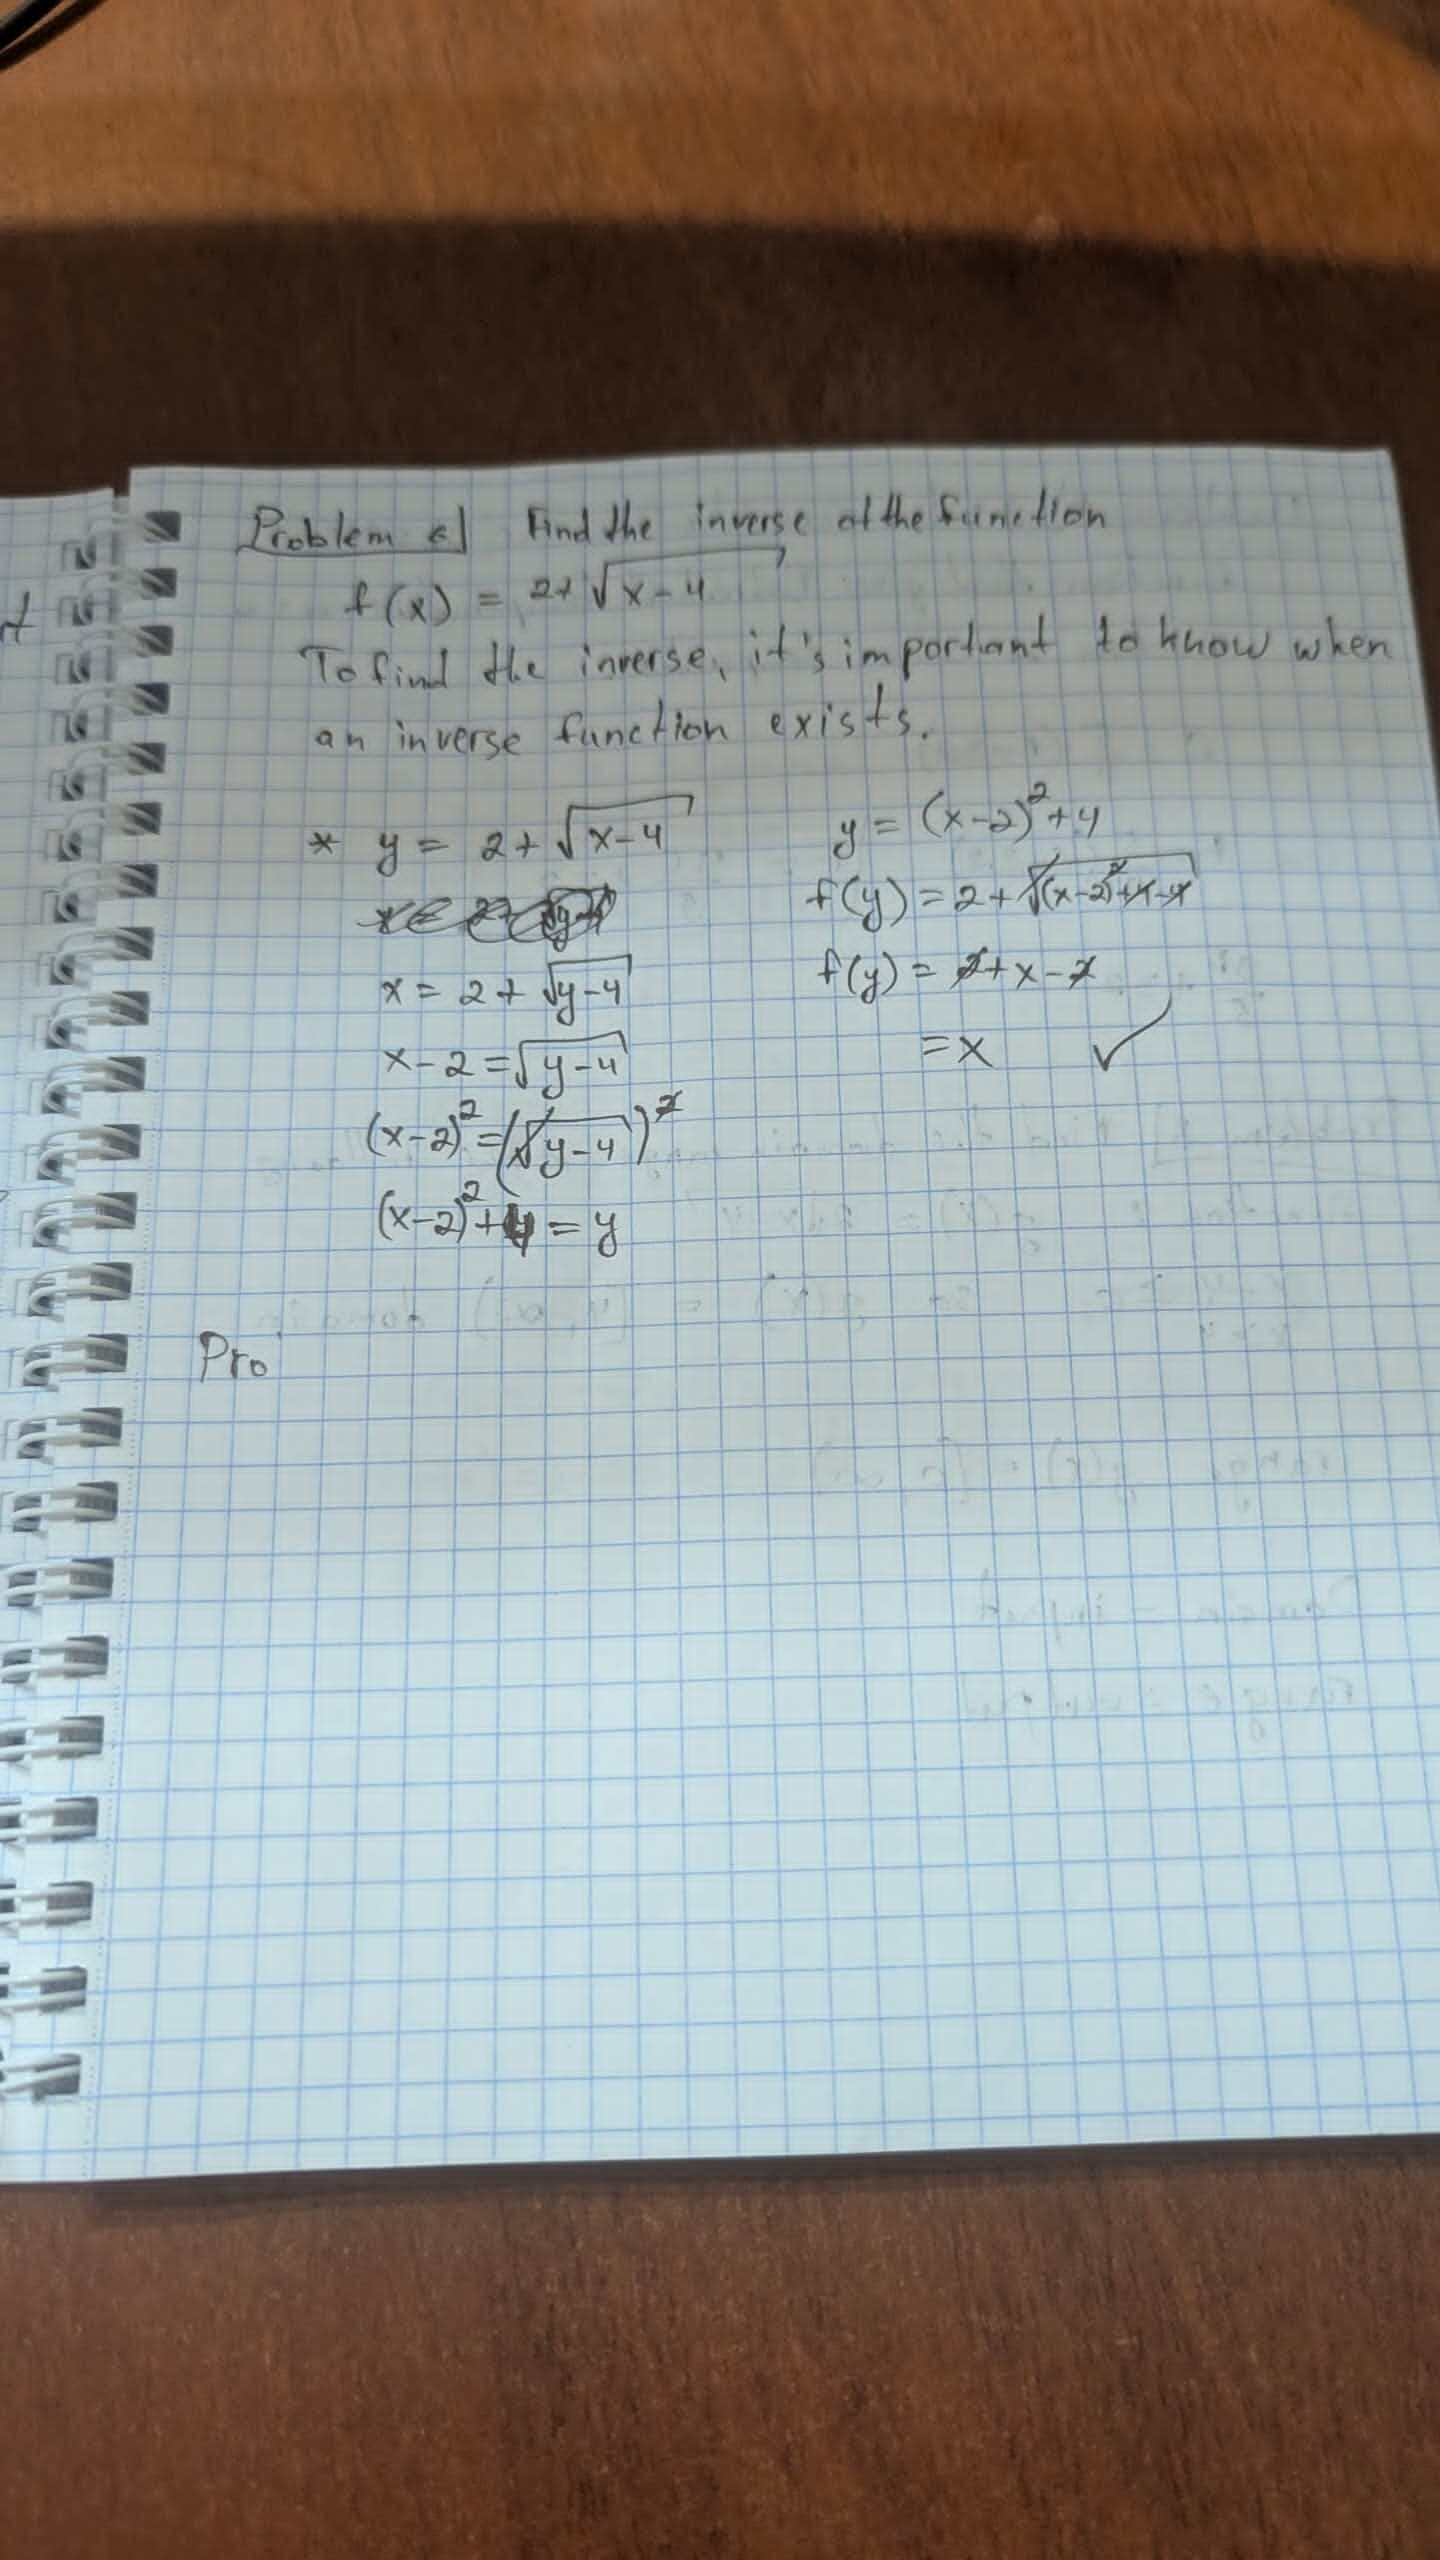 Problem 6] Find the inverse of the function
f(x) = 2+√x-4
To find the inverse, it's important to know when
an inverse function exists.
* y = 2+√x-4
x = 2+√y-4
x-2=√y-4
(x-2)²=(√y-4)²
(x-2)²+4=y
y=(x-2)²+4
f(y)=2+√(x-2)²+4-4
f(y)=2+x-2
=x ✓
Pro